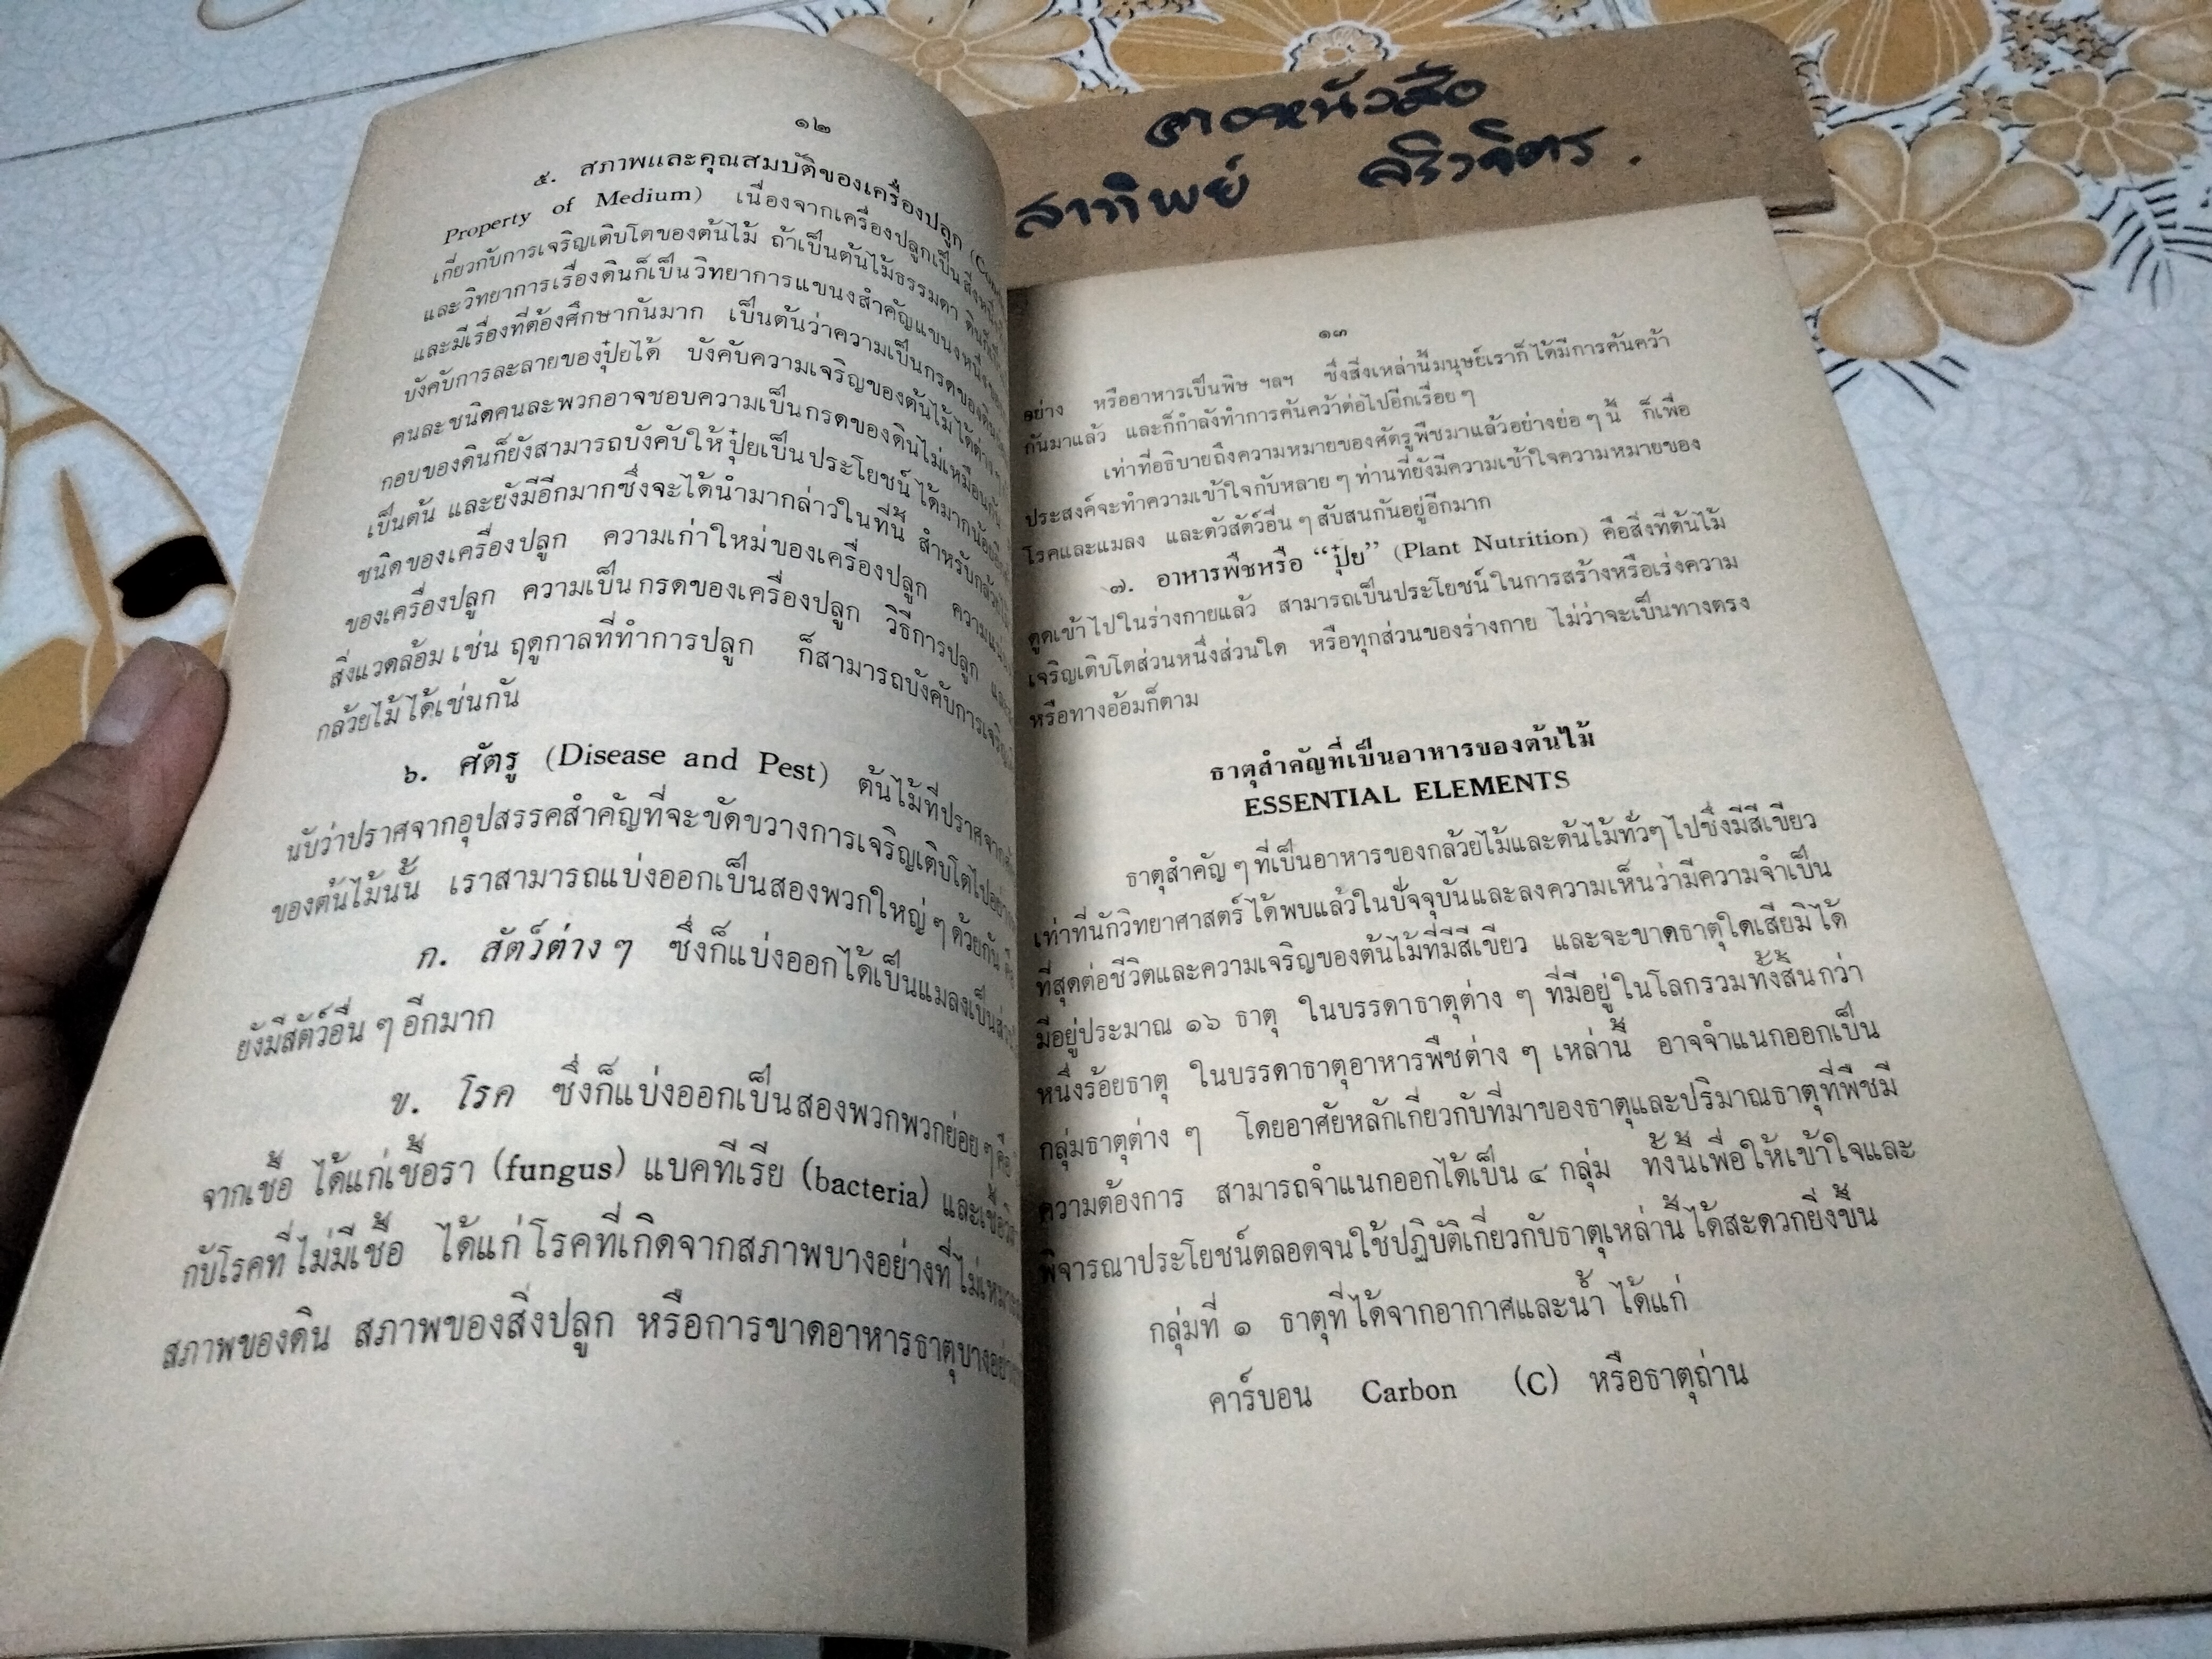 ๑๒
๕. สภาพและคุณสมบัติของเครื่องปลูก
Property of Medium) เนื่องจากเครื่องปลูกเป็นสิ่งหนึ่ง
เกี่ยวกับการเจริญเติบโตของต้นไม้ ถ้าเป็นต้นไม้ธรรมดา
และวิทยาการเรื่องดินก็เป็นวิทยาการแขนงสำคัญแขนงหนึ่ง
และมีเรื่องที่ต้องศึกษากันมาก เป็นต้นว่าความเป็นกรดของดิน
บังคับการละลายของปุ๋ยได้ บังคับความเจริญของต้นไม้ได้ต่าง ๆ
คนละชนิดคนละพวกอาจชอบความเป็นกรดของดินไม่เหมือนกัน
กอบของดินก็ยังสามารถบังคับให้ปุ๋ยเป็นประโยชน์ได้มากน้อย
เป็นต้น และยังมีอีกมากซึ่งจะได้นำมากล่าวในที่นี้ สำหรับกล้วยไม้
ชนิดของเครื่องปลูก ความเก่าใหม่ของเครื่องปลูก
ของเครื่องปลูก ความเป็นกรดของเครื่องปลูก วิธีการปลูก
สิ่งแวดล้อม เช่น ฤดูกาลที่ทำการปลูก ก็สามารถบังคับการเจริญ
กล้วยไม้ได้เช่นกัน
๖. ศัตรู (Disease and Pest) ต้นไม้ที่ปราศจาก
นับว่าปราศจากอุปสรรคสำคัญที่จะขัดขวางการเจริญเติบโตไป
ของต้นไม้นั้น เราสามารถแบ่งออกเป็นสองพวกใหญ่ ๆ ด้วยกัน คือ
ก. สัตว์ต่าง ๆ ซึ่งก็แบ่งออกได้เป็นแมลงเป็นส่วน
ยังมีสัตว์อื่น ๆ อีกมาก
ข. โรค ซึ่งก็แบ่งออกเป็นสองพวกพวกย่อย ๆ คือ
จากเชื้อ ได้แก่เชื้อรา (fungus) แบคทีเรีย (bacteria) และเชื้อ
กับโรคที่ไม่มีเชื้อ ได้แก่โรคที่เกิดจากสภาพบางอย่างที่
สภาพของดิน สภาพของสิ่งปลูก หรือการขาดอาหารธาตุบาง
สาทิพย์
๑๓
อย่าง หรืออาหารเป็นพิษ ฯลฯ ซึ่งสิ่งเหล่านี้มนุษย์เราก็ได้มีการค้นคว้า
กันมาแล้ว และก็กำลังทำการค้นคว้าต่อไปอีกเรื่อย ๆ
เท่าที่อธิบายถึงความหมายของศัตรูพืชมาแล้วอย่างย่อ ๆ นี้ ก็เพื่อ
ประสงค์จะทำความเข้าใจกับหลาย ๆ ท่านที่ยังมีความเข้าใจความหมายของ
โรคและแมลง และตัวสัตว์อื่น ๆ สับสนกันอยู่อีกมาก
๗. อาหารพืชหรือ “ปุ๋ย” (Plant Nutrition) คือสิ่งที่ต้นไม้
ดูดเข้าไปในร่างกายแล้ว สามารถเป็นประโยชน์ในการสร้างหรือเร่งความ
เจริญเติบโตส่วนหนึ่งส่วนใด หรือทุกส่วนของร่างกาย ไม่ว่าจะเป็นทางตรง
หรือทางอ้อมก็ตาม
ธาตุสำคัญที่เป็นอาหารของต้นไม้
ESSENTIAL ELEMENTS
ธาตุสำคัญ ๆ ที่เป็นอาหารของกล้วยไม้และต้นไม้ทั่วๆ ไปซึ่งมีสีเขียว
เท่าที่นักวิทยาศาสตร์ได้พบแล้วในปัจจุบันและลงความเห็นว่ามีความจำเป็น
ที่สุดต่อชีวิตและความเจริญของต้นไม้ที่มีสีเขียว และจะขาดธาตุใดเสียมิได้
มีอยู่ประมาณ ๑๖ ธาตุ ในบรรดาธาตุต่าง ๆ ที่มีอยู่ในโลกรวมทั้งสิ้นกว่า
หนึ่งร้อยธาตุ ในบรรดาธาตุอาหารพืชต่าง ๆ เหล่านี้ อาจจำแนกออกเป็น
กลุ่มธาตุต่าง ๆ โดยอาศัยหลักเกี่ยวกับที่มาของธาตุและปริมาณธาตุที่พืชมี
ความต้องการ สามารถจำแนกออกได้เป็น ๔ กลุ่ม ทั้งนี้เพื่อให้เข้าใจและ
พิจารณาประโยชน์ตลอดจนใช้ปฏิบัติเกี่ยวกับธาตุเหล่านี้ได้สะดวกยิ่งขึ้น
กลุ่มที่ ๑ ธาตุที่ได้จากอากาศและน้ำ ได้แก่
คาร์บอน Carbon (C) หรือธาตุถ่าน